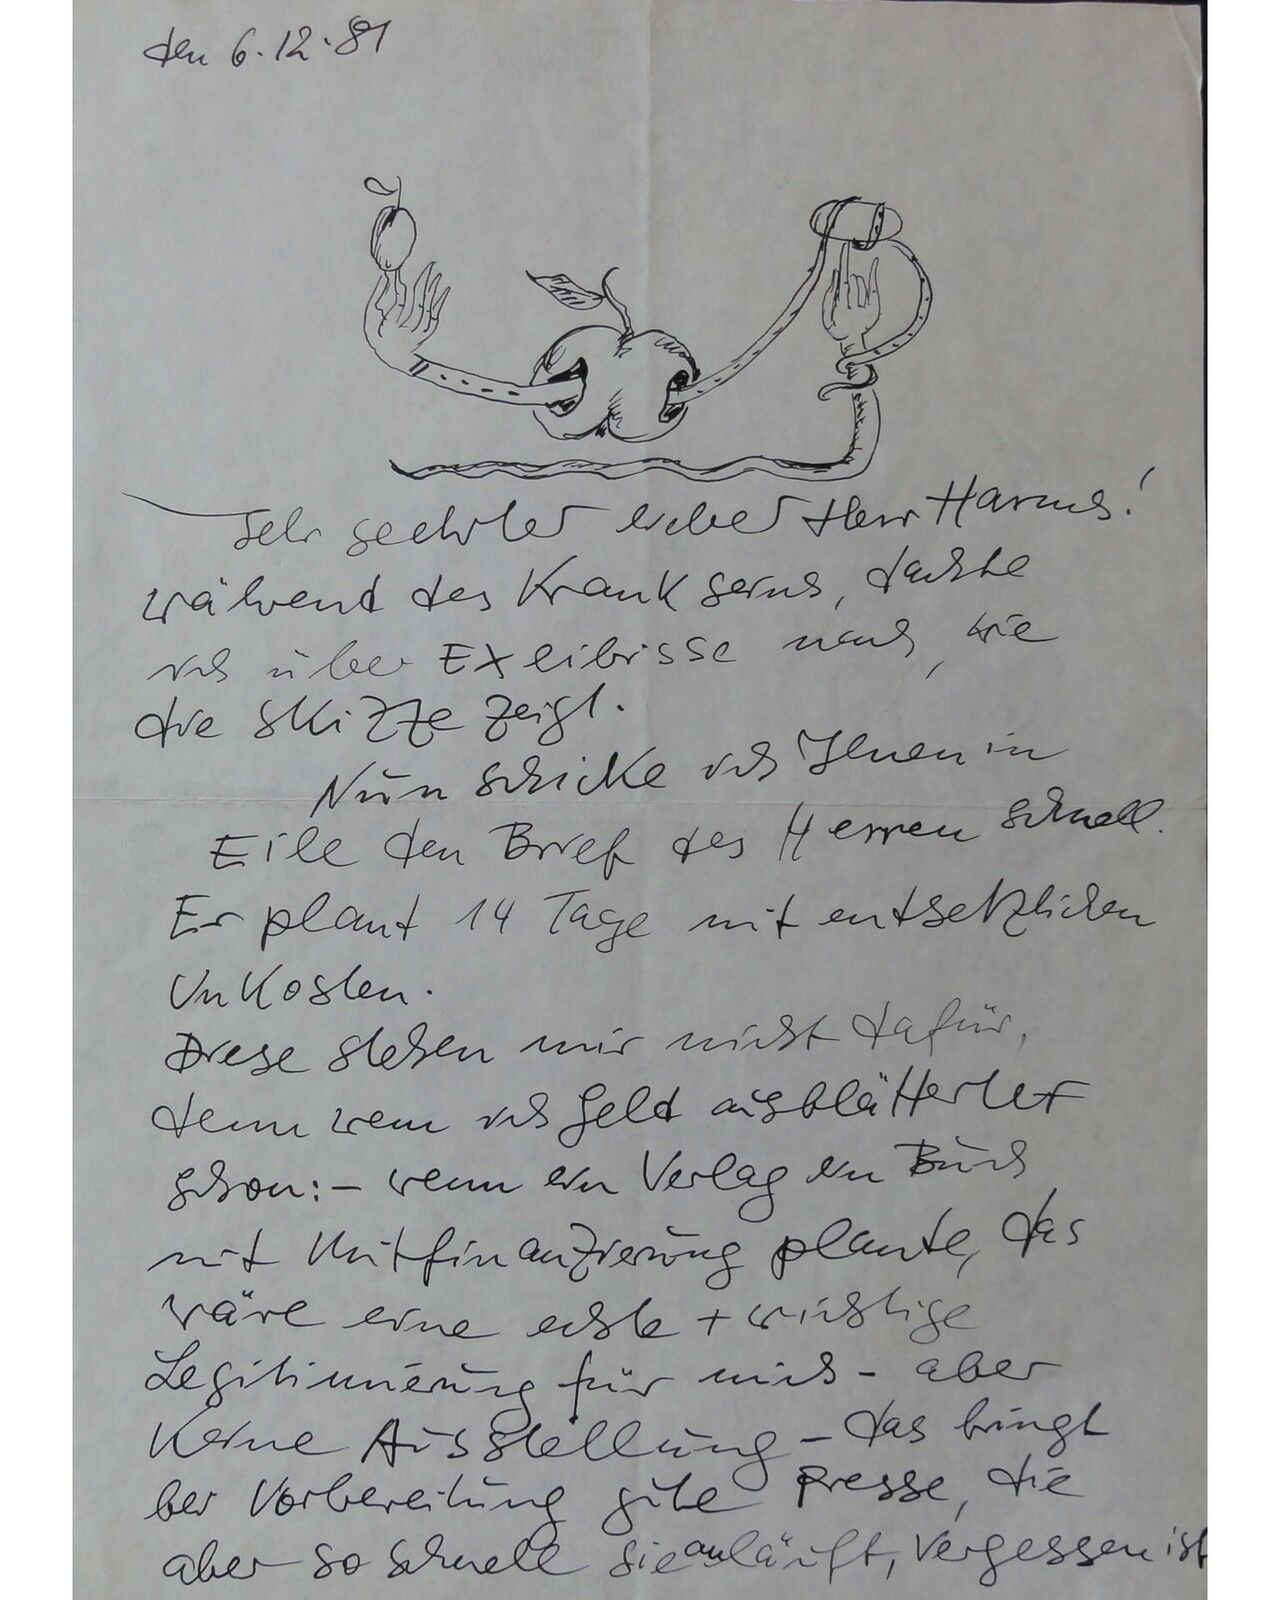 den 6.12.81
Sehr geehrter lieber Herr Harms!
während des Krankseins, dachte
ich über Exlibrisse nach, wie
die Skizze zeigt.
Nun schicke ich Ihnen in
Eile den Brief des Herren Schnell.
Er plant 14 Tage mit entsetzlichen
Unkosten.
Diese stehen mir nicht dafür,
denn wenn ich Geld ausblättert
schon: – wenn ein Verlag ein Buch
mit Mitfinanzierung plante, das
wäre eine echte + wichtige
Legitimierung für mich – aber
keine Ausstellung – das bringt
bei Vorbereitung gute Presse, die
aber so schnell sie anläuft, vergessen ist